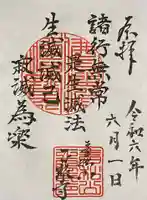 奉拝
令和六年
六月一日
諸行無常
是生滅法
生滅滅已
寂滅為楽